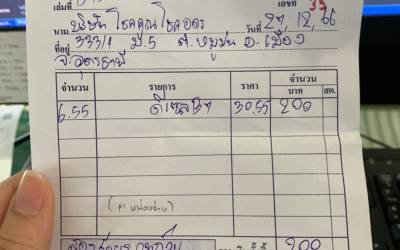 เล่มที่ เลขที่ 39
นาม บริษัท โชคคูณโชคอุดร วันที่ 27/12/66
ที่อยู่ 333/1 ม.5 ต.หมูม่น อ.เมือง
จ.อุดรธานี
จำนวน รายการ ราคา จำนวน
บาท สต.
6.55 ดีเซล 30.55 200
สองร้อยบาทถ้วน 200